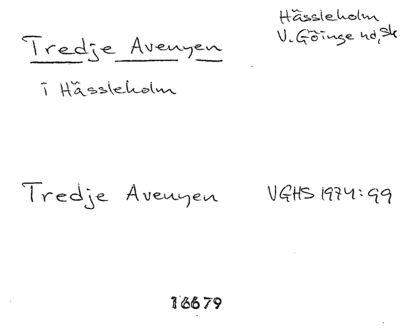 Tredje Avenyen
i Hässleholm
Hässleholm
V. Göinge hd, Sk
Tredje Avenyen VGHS 1974:99
16679